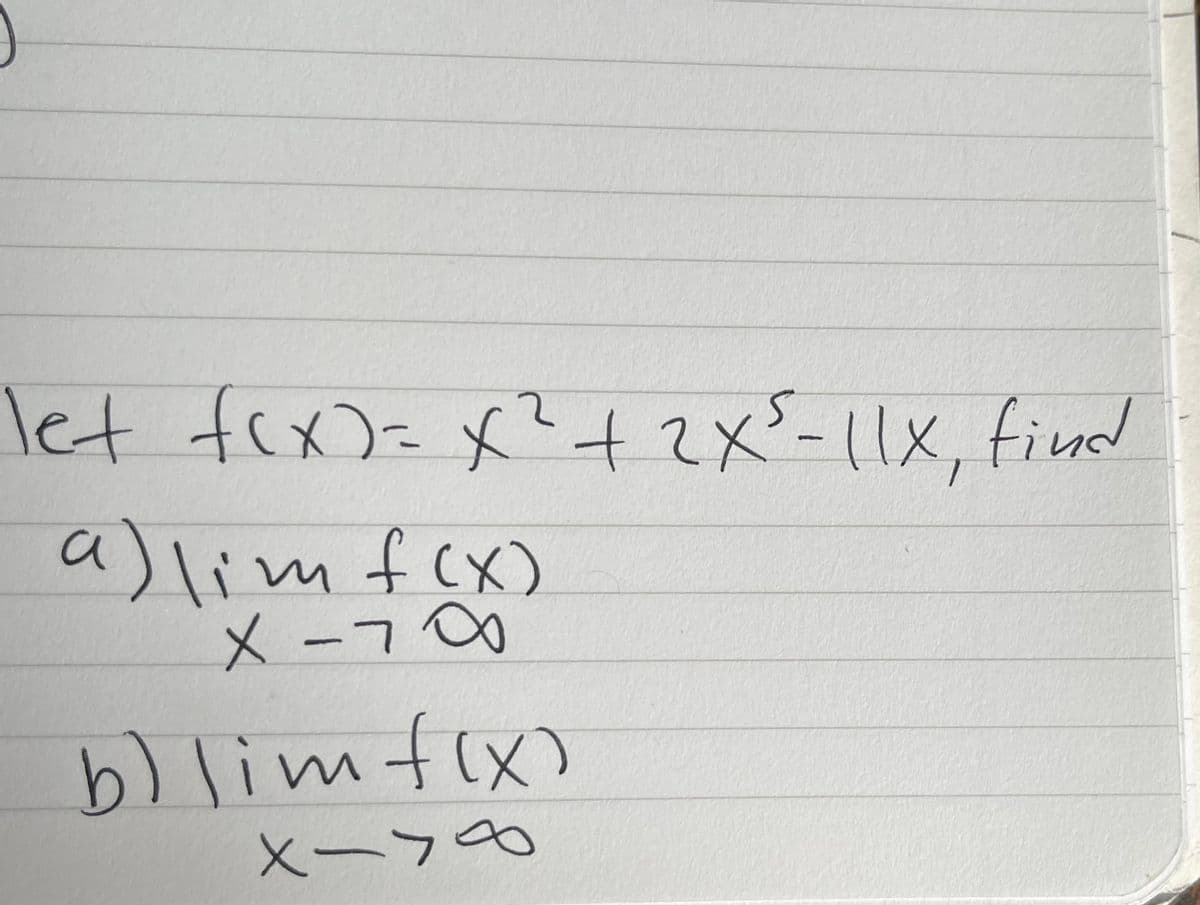 let f(x) = x² + 2x⁵ - 11x, find
a) lim f(x)
x -> ∞
b) lim f(x)
x -> ∞